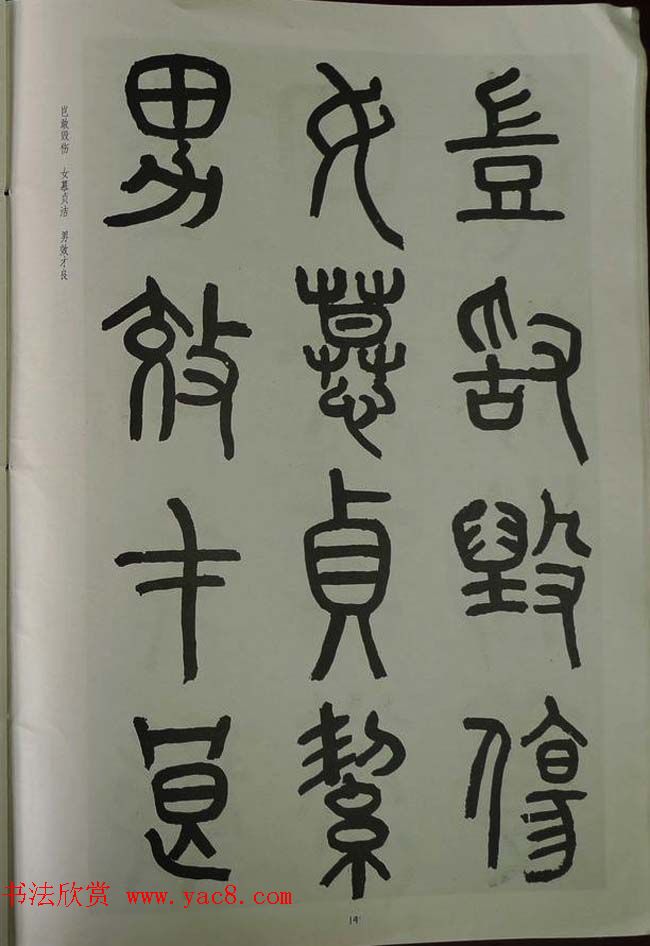 豈敢毀傷
女慕貞絜
男效才良
岂敢毁伤 女慕贞洁 男效才良
14
书法欣赏 www.yac8.com